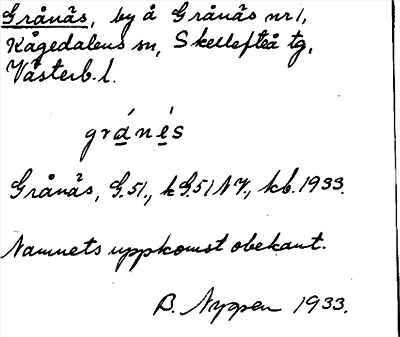 Grånäs, by å Grånäs nr 1,
Kågedalens sn, Skellefteå tg,
Västerb. l.
gránés
Grånäs, G.51., k G.51 NV., kb. 1933.
Namnets uppkomst obekant.
B. Nygren 1933.